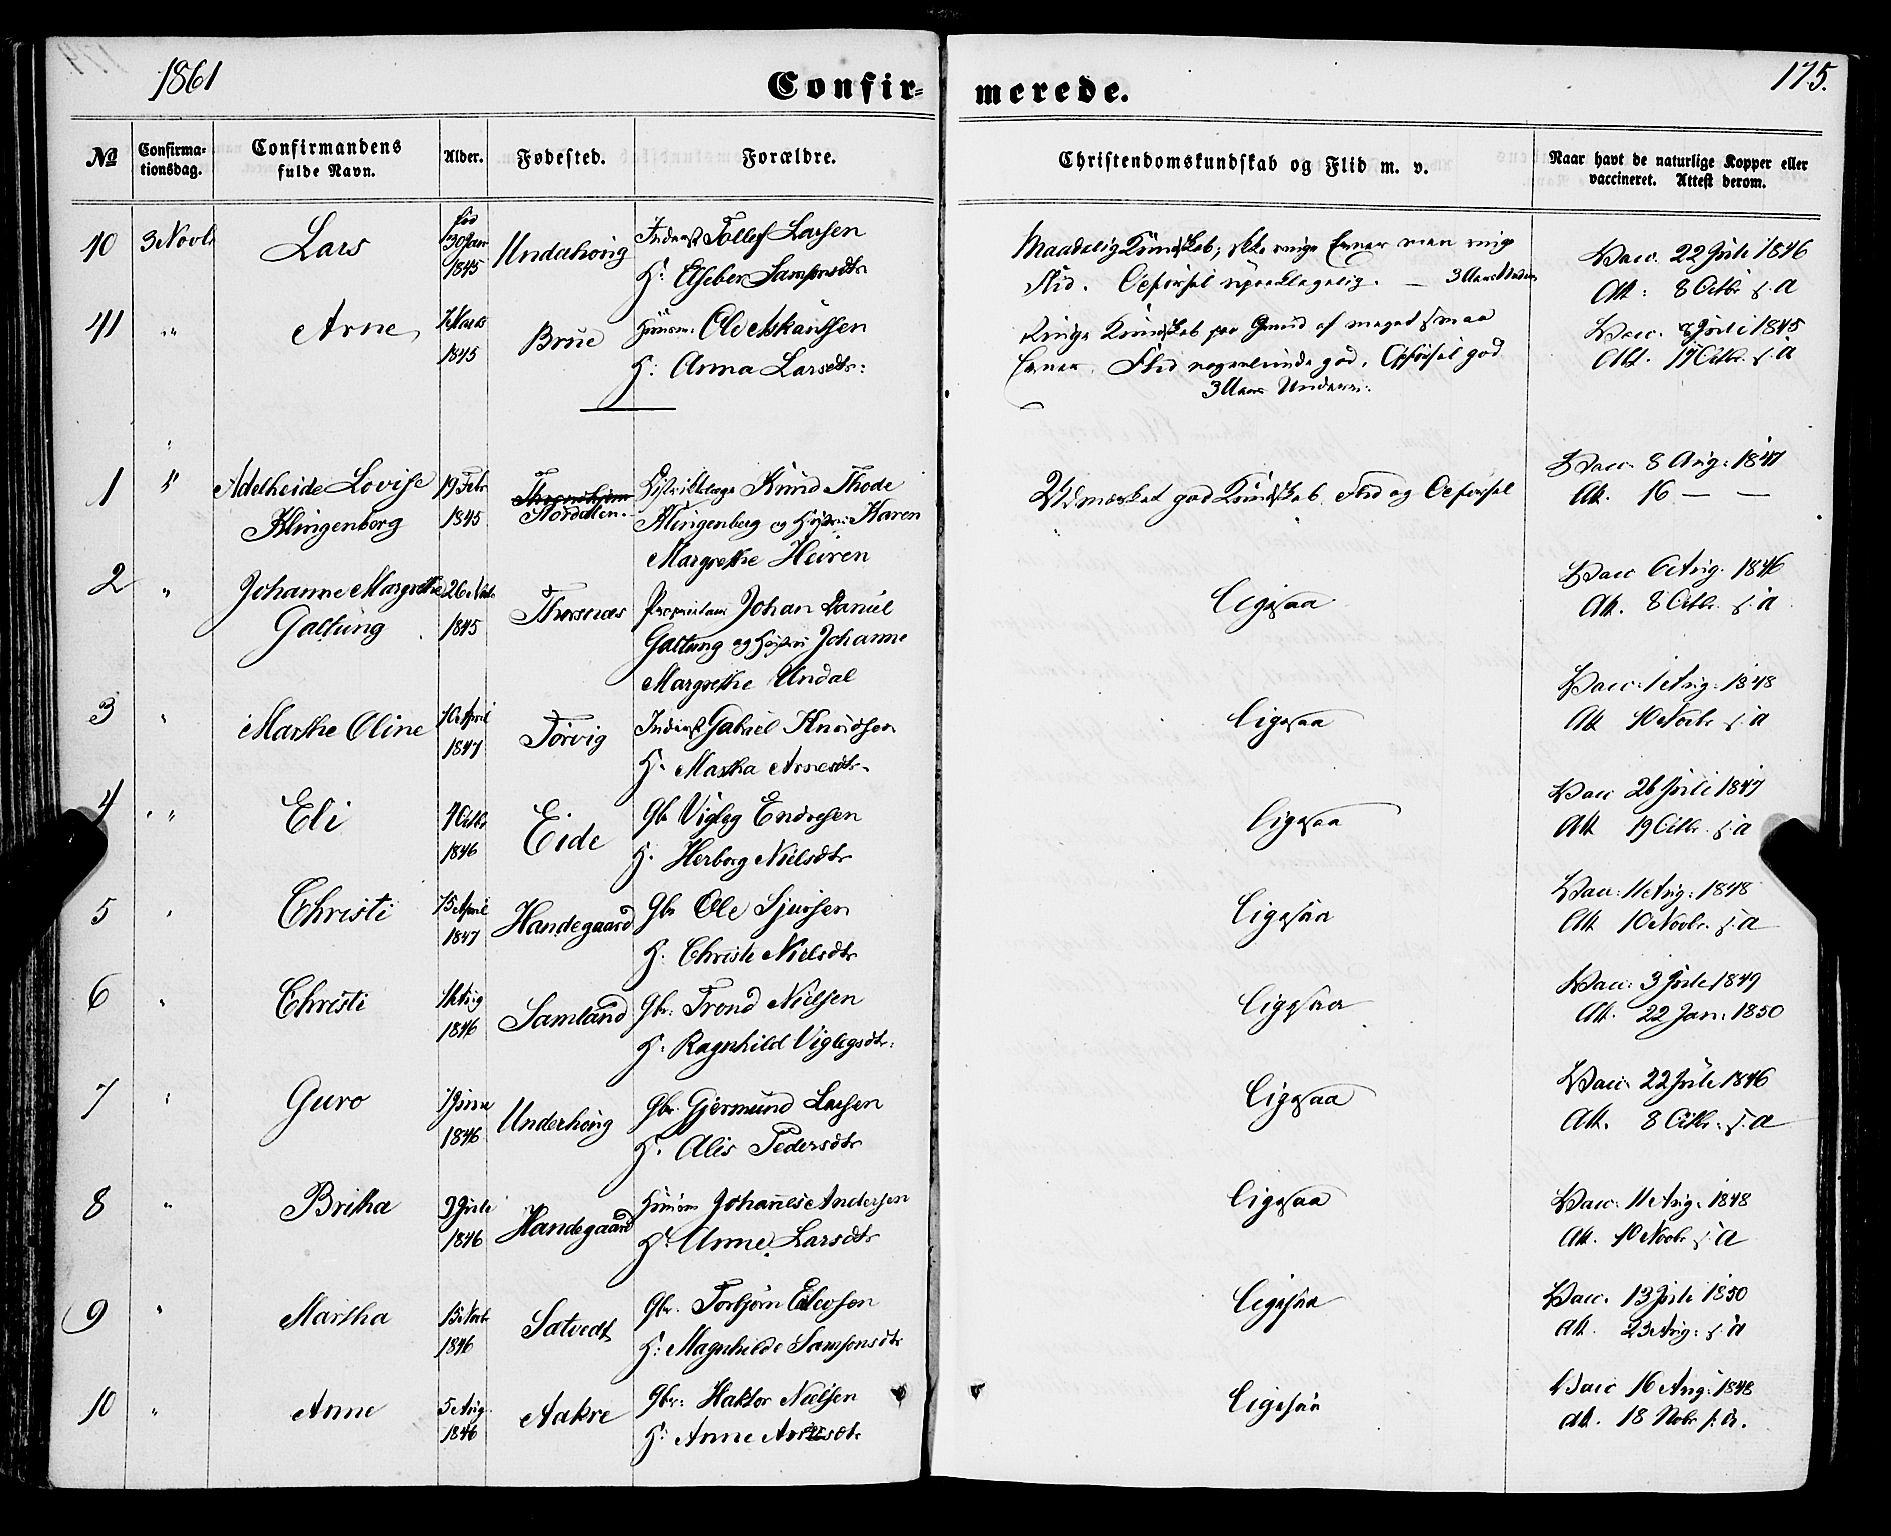 1861
Confir-
merede.
175.
No
Confirma-
tionsdag.
Confirmandens
fulde Navn.
Alder.
Fødested.
Forældre.
Christendomskundskab og Flid m. v.
Naar havt de naturlige Kopper eller
vaccineret. Attest derom.
40 3 Novb Lars
30 Jan
1845
Undahoüg
Tollef Larsen
H: Elseber Samsonsdtr
Maadelig Kundskab; ikke ringe Evner men ringe
Flid. Opførsel upaaklagelig. —
Vacc. 22 Juli 1846
Att: 8 Octbr s. a
41 " Arne
Marts
1845
Brüe
Huusm: Ole Askautsen
H: Anna Larsdtr:
Ringe Kundskab paa Grund af meget smaa
Evner. Flid nogenlunde god. Opførsel god
3 Uger Underv:
Vacc. 8 Juli 1845
Att. 17 Octbr. s. a
1 " Adelheide Lovise
Klingenberg
19 Febr
1845
Districtslæge Knud Thode
Klingenberg og Hustru Karen
Margrethe Heiren
Udmærket god Kundskab, Flid og Opførsel
Vacc. 8 Aug: 1847
Att. 16 — —
2 " Johanne Margrethe
Galtung
26
1845
Thorsnæs
Proprietair Johan Daniel
Galtung og Hustru Johanne
Margrethe Undal
Ligesaa
Vacc 6 Aug. 1846
Att. 8 Octbr. s. a
3 " Marthe Oline
10 April
1847
Torvig
Inderst Gabriel Knudsen
H. Martha Arnesdtr.
Ligesaa
Vacc: 1 Aug: 1848
Att 10 Novbr s. a
4 " Eli
4 Octbr
1846
Eide
Gbr Vigleg Endresen
H. Herborg Nielsdtr
Ligesaa
Vacc 26 Juli 1847
Att 19 Octbr. s. a
5 " Christi
15 April
1847
Handegaard
Gbr Ole Sjursen
H. Christi Nielsdtr
Ligesaa
Vacc: 11 Aug: 1848
Att 10 Novbr. s. a
6 " Christi
Aug
1846
Samland
Gbr: Trond Nielsen
H: Ragnhild Viglegsdtr:
Ligesaa
Vacc: 3 Juli 1849
Att. 22 Jan: 1850
7 " Guro
Juni
1846
Underhoüg
Gbr. Gjermund Larsen
H. Alis Pedersdtr
Ligesaa
Vacc. 22 Juli 1846
Att. 8 Octbr. s. a
8 " Britha
9 Juli
1846
Handegaard
Huusm Johannes Andersen
H: Anne Larsdtr
Ligesaa
Vacc: 11 Aug: 1848
Att. 10 Novbr s. a
9 " Martha
15 Novb
1846
Satvedt
Gbr. Torbjørn Eilevsen
H: Magnhilde Samsonsdtr
Ligesaa
Vacc. 13 Juli 1850
Att. 23 Aug: s. a
10 " Anne
5 Aug.
1846
Aakre
Gbr: Haktor Nielsen
H: Anne
Ligesaa
Vacc 16 Aug: 1848
att. 18 Nobr s. a.